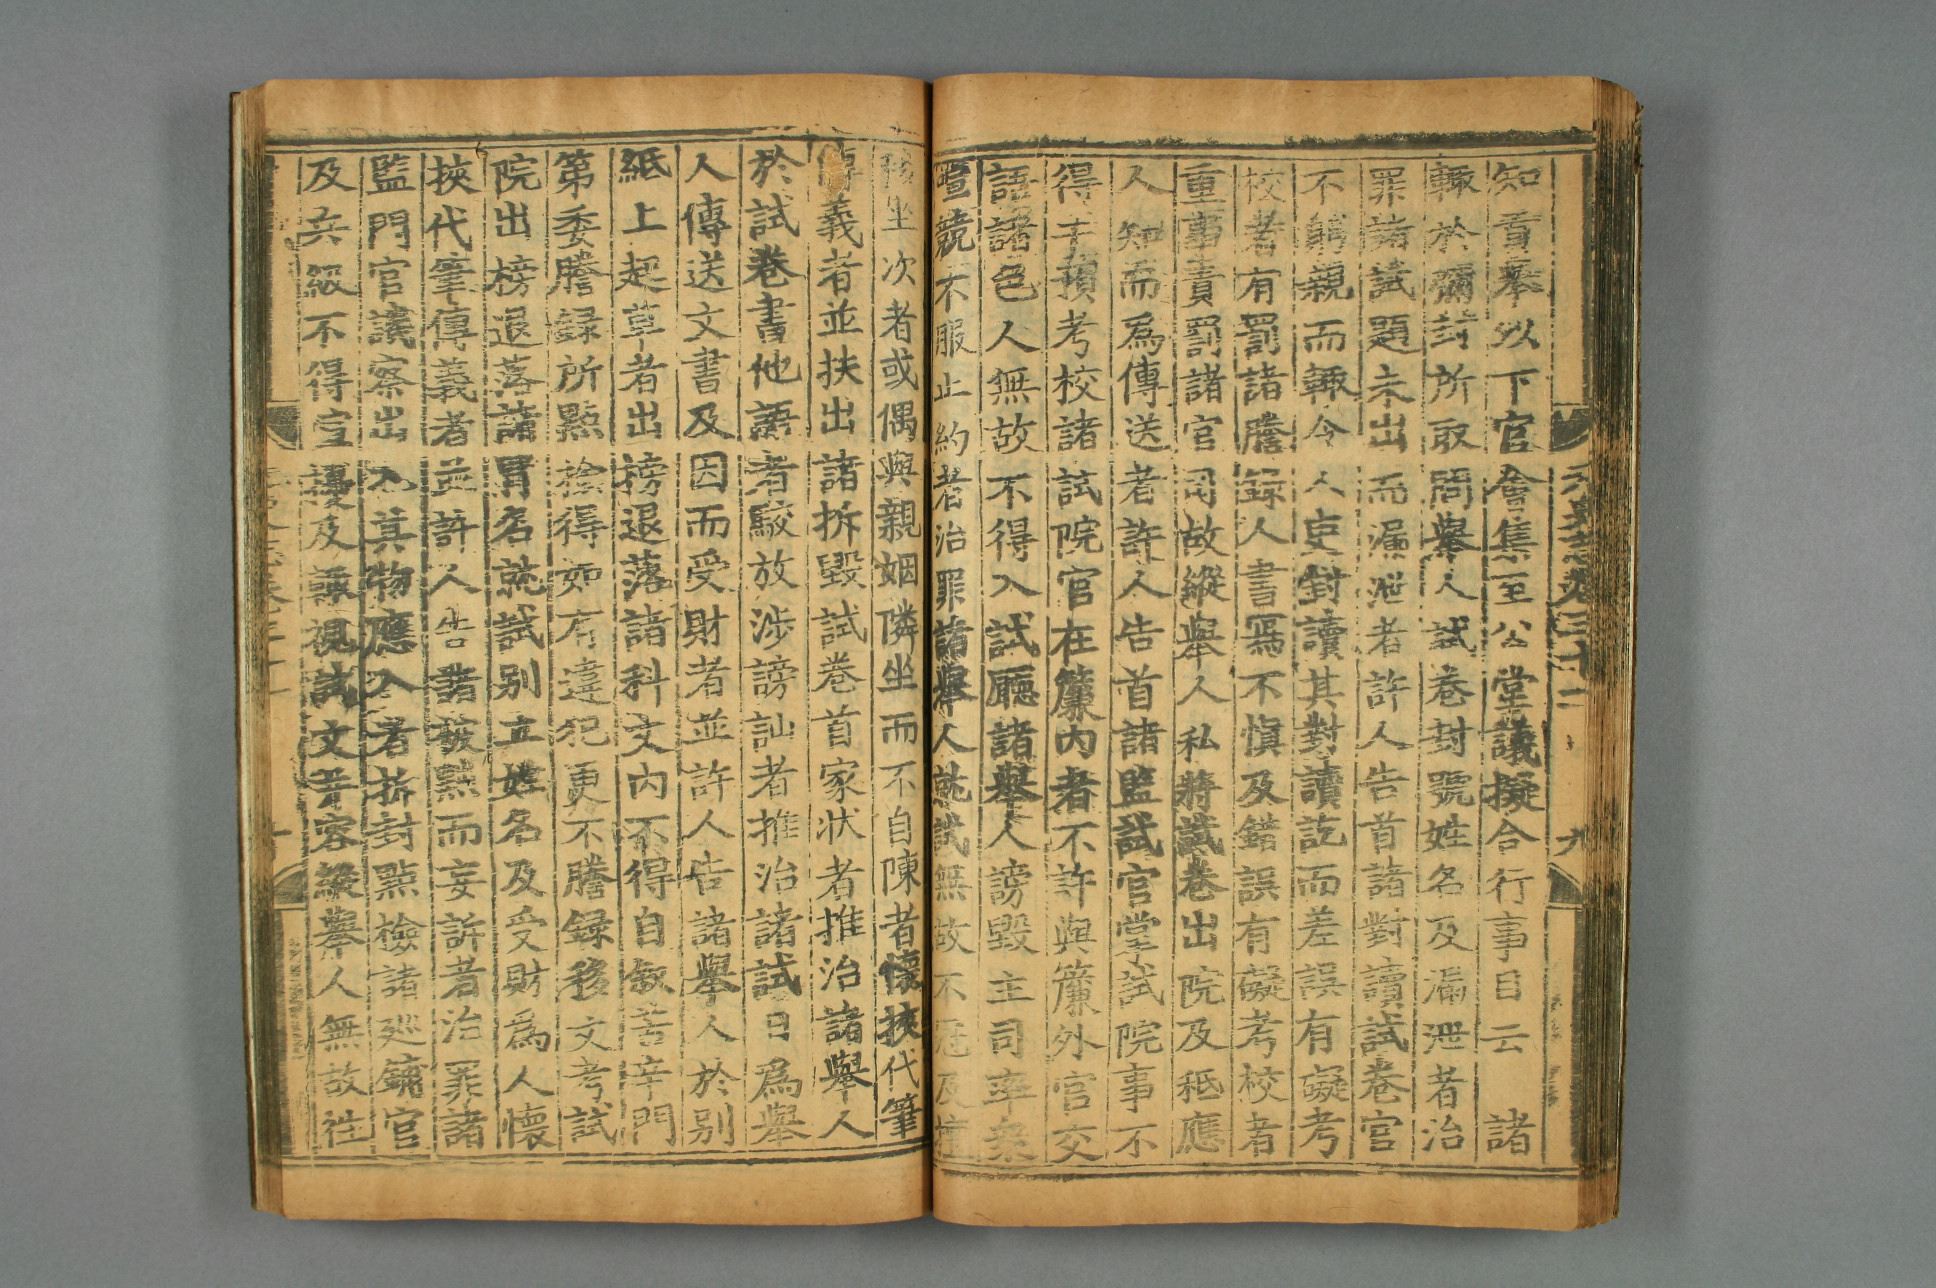 知貢舉以下官會集至公堂議擬合行事目云 諸
輒於彌封所取問舉人試卷封號姓名及漏泄者治
罪諸試題未出而漏泄者許人告首諸對讀試卷官
不躬親而輒令人吏對讀其對讀訖而差誤有礙考
校者有罰諸謄錄人書寫不愼及錯誤有礙考校者
重事責罰諸官司故縱舉人私將試卷出院及秪應
人知而爲傳送者許人告首諸監試官掌試院事不
得干預考校諸試院官在簾內者不許與簾外官交
語諸色人無故不得入試廳諸舉人謗毀主司率衆
喧競不服止約者治罪諸舉人就試無故不冠及
元史志卷三十一 九
移坐次者或偶與親姻隣坐而不自陳者懷挾代筆
傳義者並扶出諸拆毀試卷首家狀者推治諸舉人
於試卷書他語者駮放涉謗訕者推治諸試日爲舉
人傳送文書及因而受財者並許人告諸舉人於別
紙上起草者出榜退落諸科文內不得自敍苦辛門
第委謄録所點檢得如有違犯更不謄録移文考試
院出榜退落諸冒名就試別立姓名及受財爲人懷
挾代筆傳義者並許人告諸被黜而妄訴者治罪諸
監門官譏察出入其物應入者拆封點檢諸廵鋪官
及兵級不得喧譟及輒視試文幷容縱舉人無故往